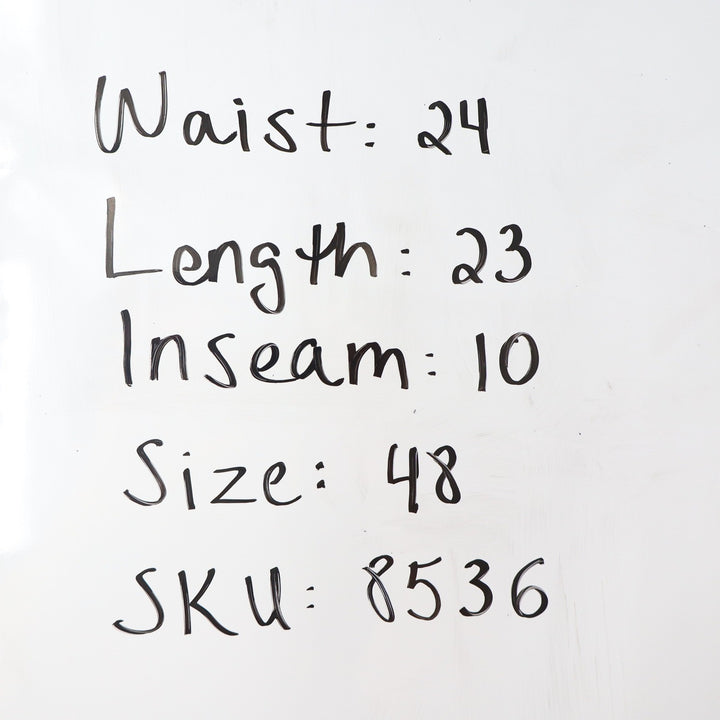 Waist: 24
Length: 23
Inseam: 10
Size: 48
SKU: 8536